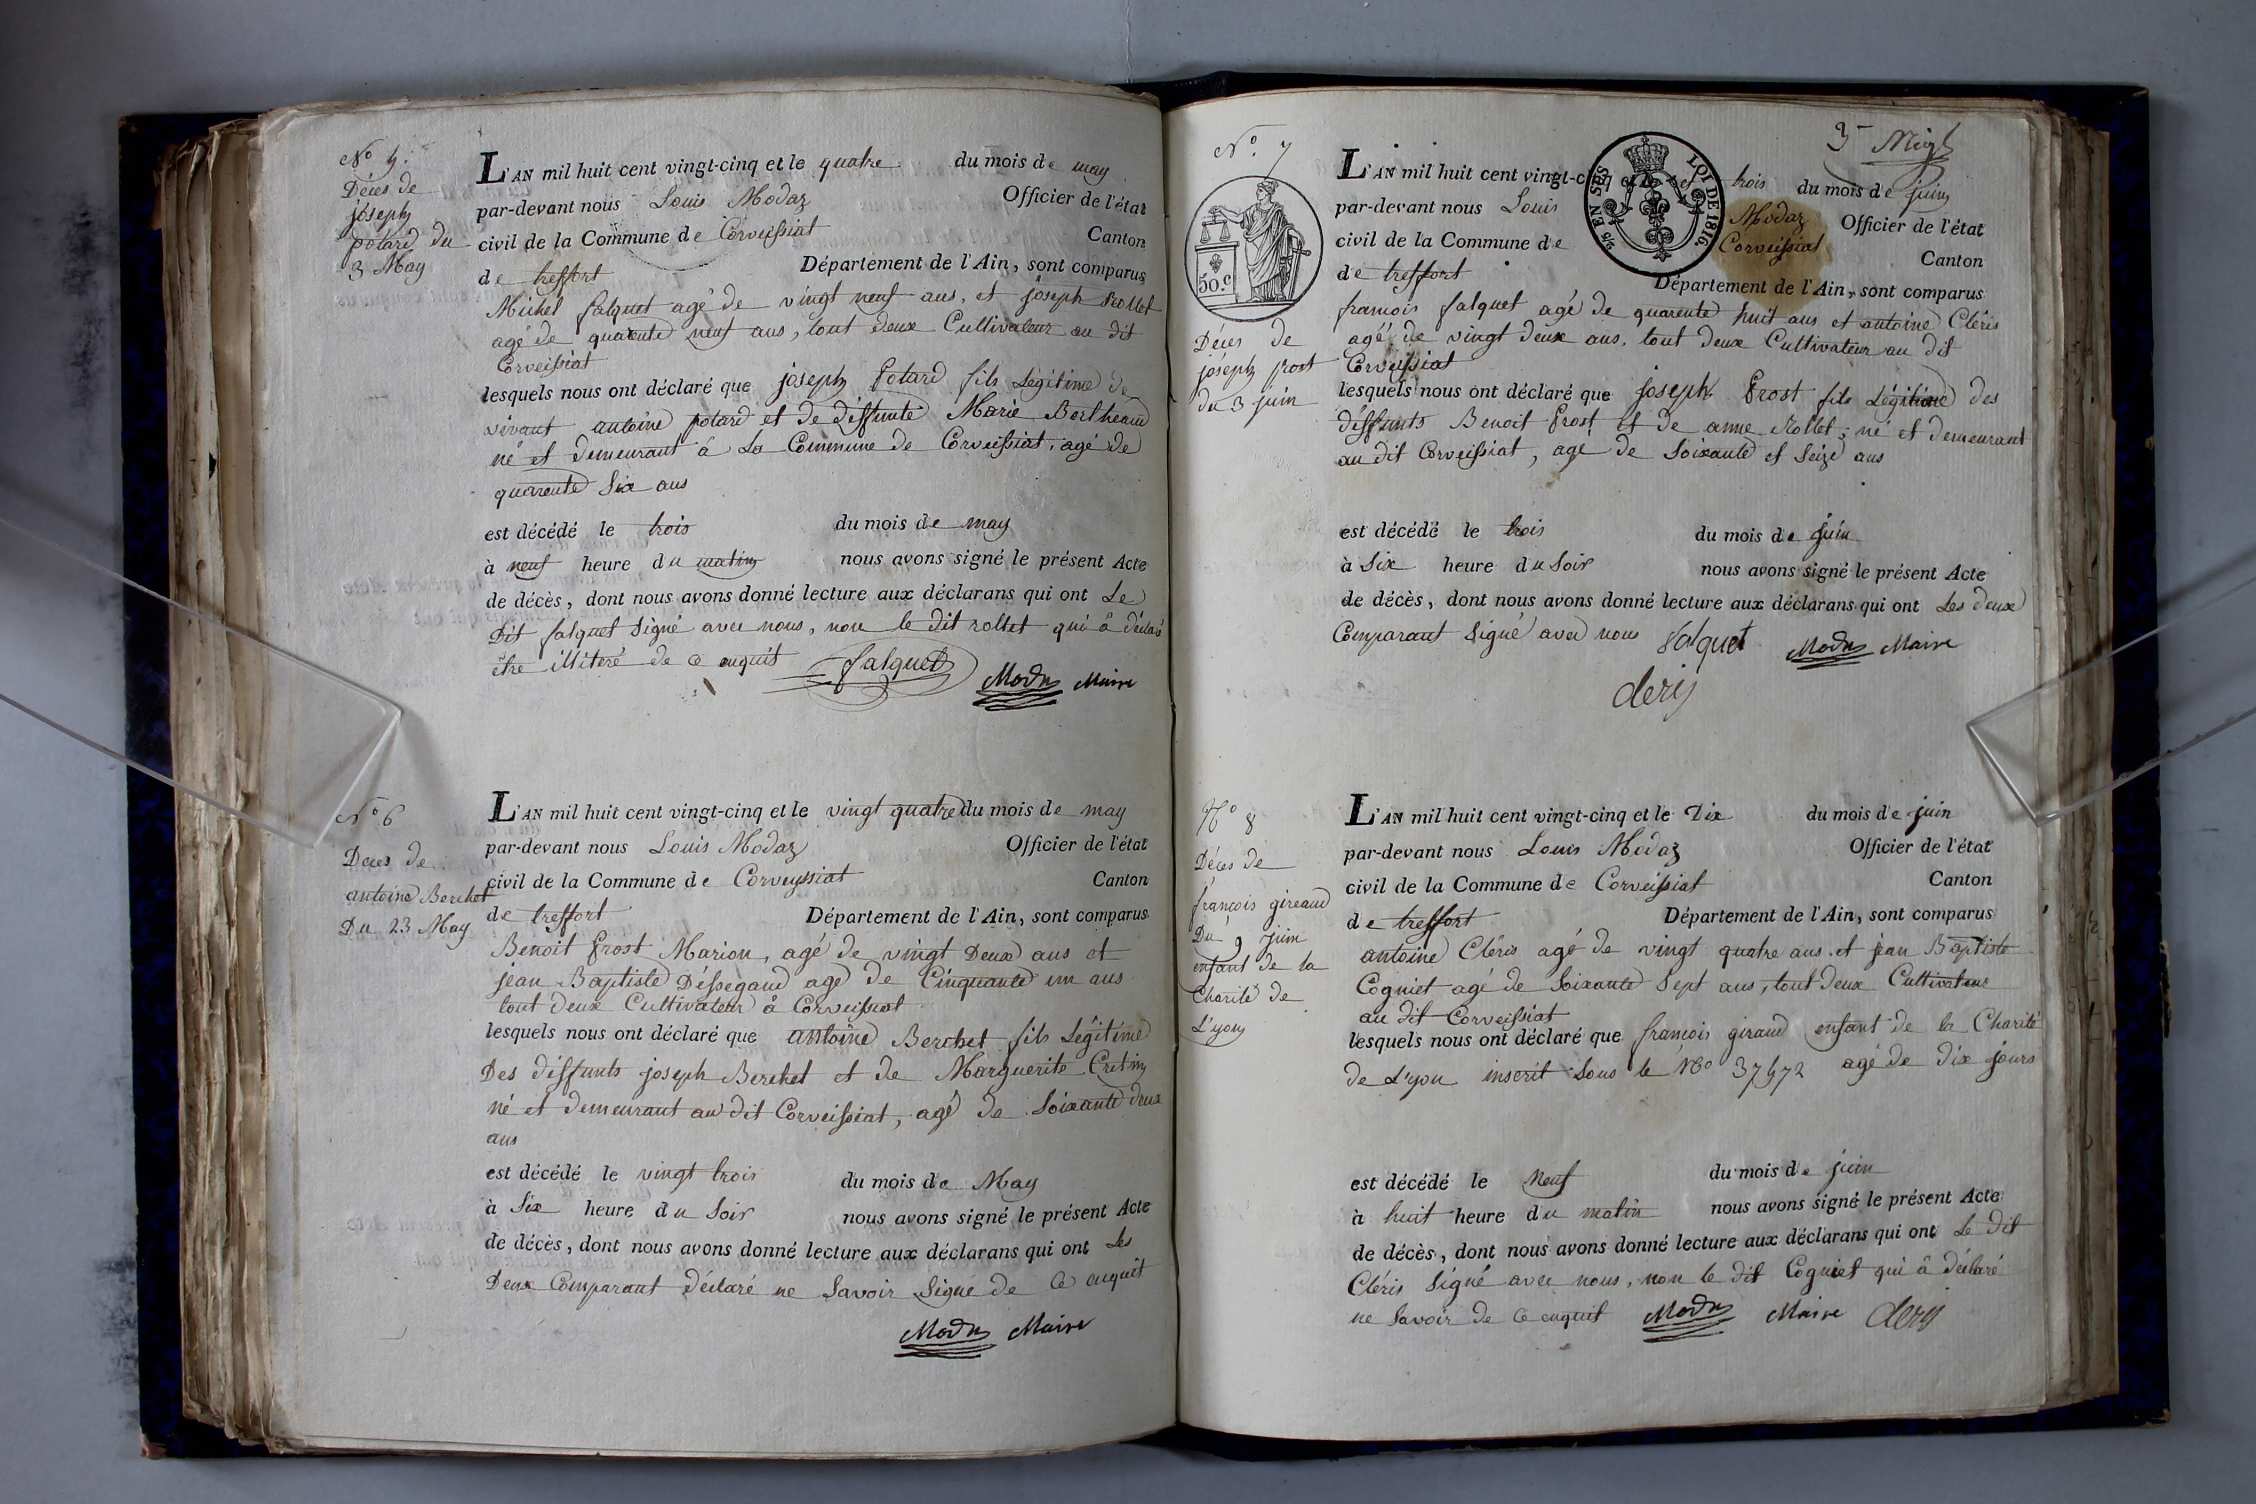 No 5.
Décès de
joseph
potard du
3 May
L'AN mil huit cent vingt-cinq et le quatre du mois de may
par-devant nous Louis Modaz Officier de l'état
civil de la Commune de Corveissiat Canton
de treffort Département de l'Ain, sont comparus
Michel falquet agé de vingt neuf ans, et joseph Rollet
agé de quarente neuf ans, tout deux Cultivateur au dit
Corveissiat
lesquels nous ont déclaré que joseph Potard fils Légitime de
vivant antoine potard et de diffunte Marie Bertheaud
né et demeurant à La Commune de Corveissiat, agé de
quarente Six ans
est décédé le trois du mois de may
à neuf heure du matin nous avons signé le présent Acte
de décès, dont nous avons donné lecture aux déclarans qui ont Le
Dit falquet Signé avec nous, non le dit rollet qui à déclaré
être illiteré de ce enquit falquet Modaz Maire
No 6
Deces de
antoine Berchet
Du 23 May
L'AN mil huit cent vingt-cinq et le vingt quatre du mois de may
par-devant nous Louis Modaz Officier de l'état
civil de la Commune de Corveyssiat Canton
de treffort Département de l'Ain, sont comparus
Benoit Prost Marion, agé de vingt Deux ans et
jean Baptiste Déssegaud agé de Cinquante un ans
tout deux Cultivateur à Corveissiat
lesquels nous ont déclaré que antoine Berchet fils Legitime
Des diffunts joseph Berchet et de Marguerite Cretin
né et demeurant au dit Corveissiat, agé de Soixante deux
ans
est décédé le vingt trois du mois de May
à Six heure du Soir nous avons signé le présent Acte
de décès, dont nous avons donné lecture aux déclarans qui ont Les
Deux Comparant déclaré ne Savoir Signé de Ce enquit
Modaz Maire
3 
No. 7
50.c
5/5 EN SUS
LOI DE 1816.
Décès de
joséph prost
du 3 juin
L'AN mil huit cent vingt-cinq et le trois du mois de juin
par-devant nous Louis Modaz Officier de l'état
civil de la Commune de Corveissiat Canton
de treffort Département de l'Ain, sont comparus
francois falquet agé de quarente huit ans et antoine Cléris
agé de vingt deux ans, tout deux Cultivateur au dit
Corveissiat
lesquels nous ont déclaré que joseph Prost fils Légitime des
diffunts Benoit Prost et de anne Rollet, né et demeurant
au dit Corveissiat, agé de Soixante et Seize ans
est décédé le trois du mois de juin
à Six heure du Soir nous avons signé le présent Acte
de décès, dont nous avons donné lecture aux déclarans qui ont Les deux
Comparant Signé avec nous falquet Modaz Maire
cleris
No 8
Déces de
françois gireaud
Du 9 juin
enfant de la
Charité de
L'yon
L'AN mil huit cent vingt-cinq et le Dix du mois de juin
par-devant nous Louis Modaz Officier de l'état
civil de la Commune de Corveissiat Canton
de treffort Département de l'Ain, sont comparus
antoine Cléris agé de vingt quatre ans et jean Baptiste
Cogniet agé de Soixante Sept ans, tout deux Cultivateur
au dit Corveissiat
lesquels nous ont déclaré que francois giraud enfant de la Charité
de L'yon inscrit Sous le No 37472 agé de dix jours
est décédé le Neuf du mois de juin
à huit heure du matin nous avons signé le présent Acte
de décès, dont nous avons donné lecture aux déclarans qui ont Le dit
Cléris Signé avec nous, non le dit Cogniet qui à déclaré
ne Savoir de Ce enquit Modaz Maire cleris